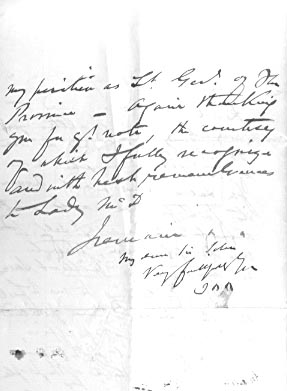 my position as Lt. Govr. of the
Province – Again thanking
you for yr. note, the courtesy
of which I fully recognize
and with best remembrances
to Lady McD
I remain
My dear Sir John
Very faithfully Yrs